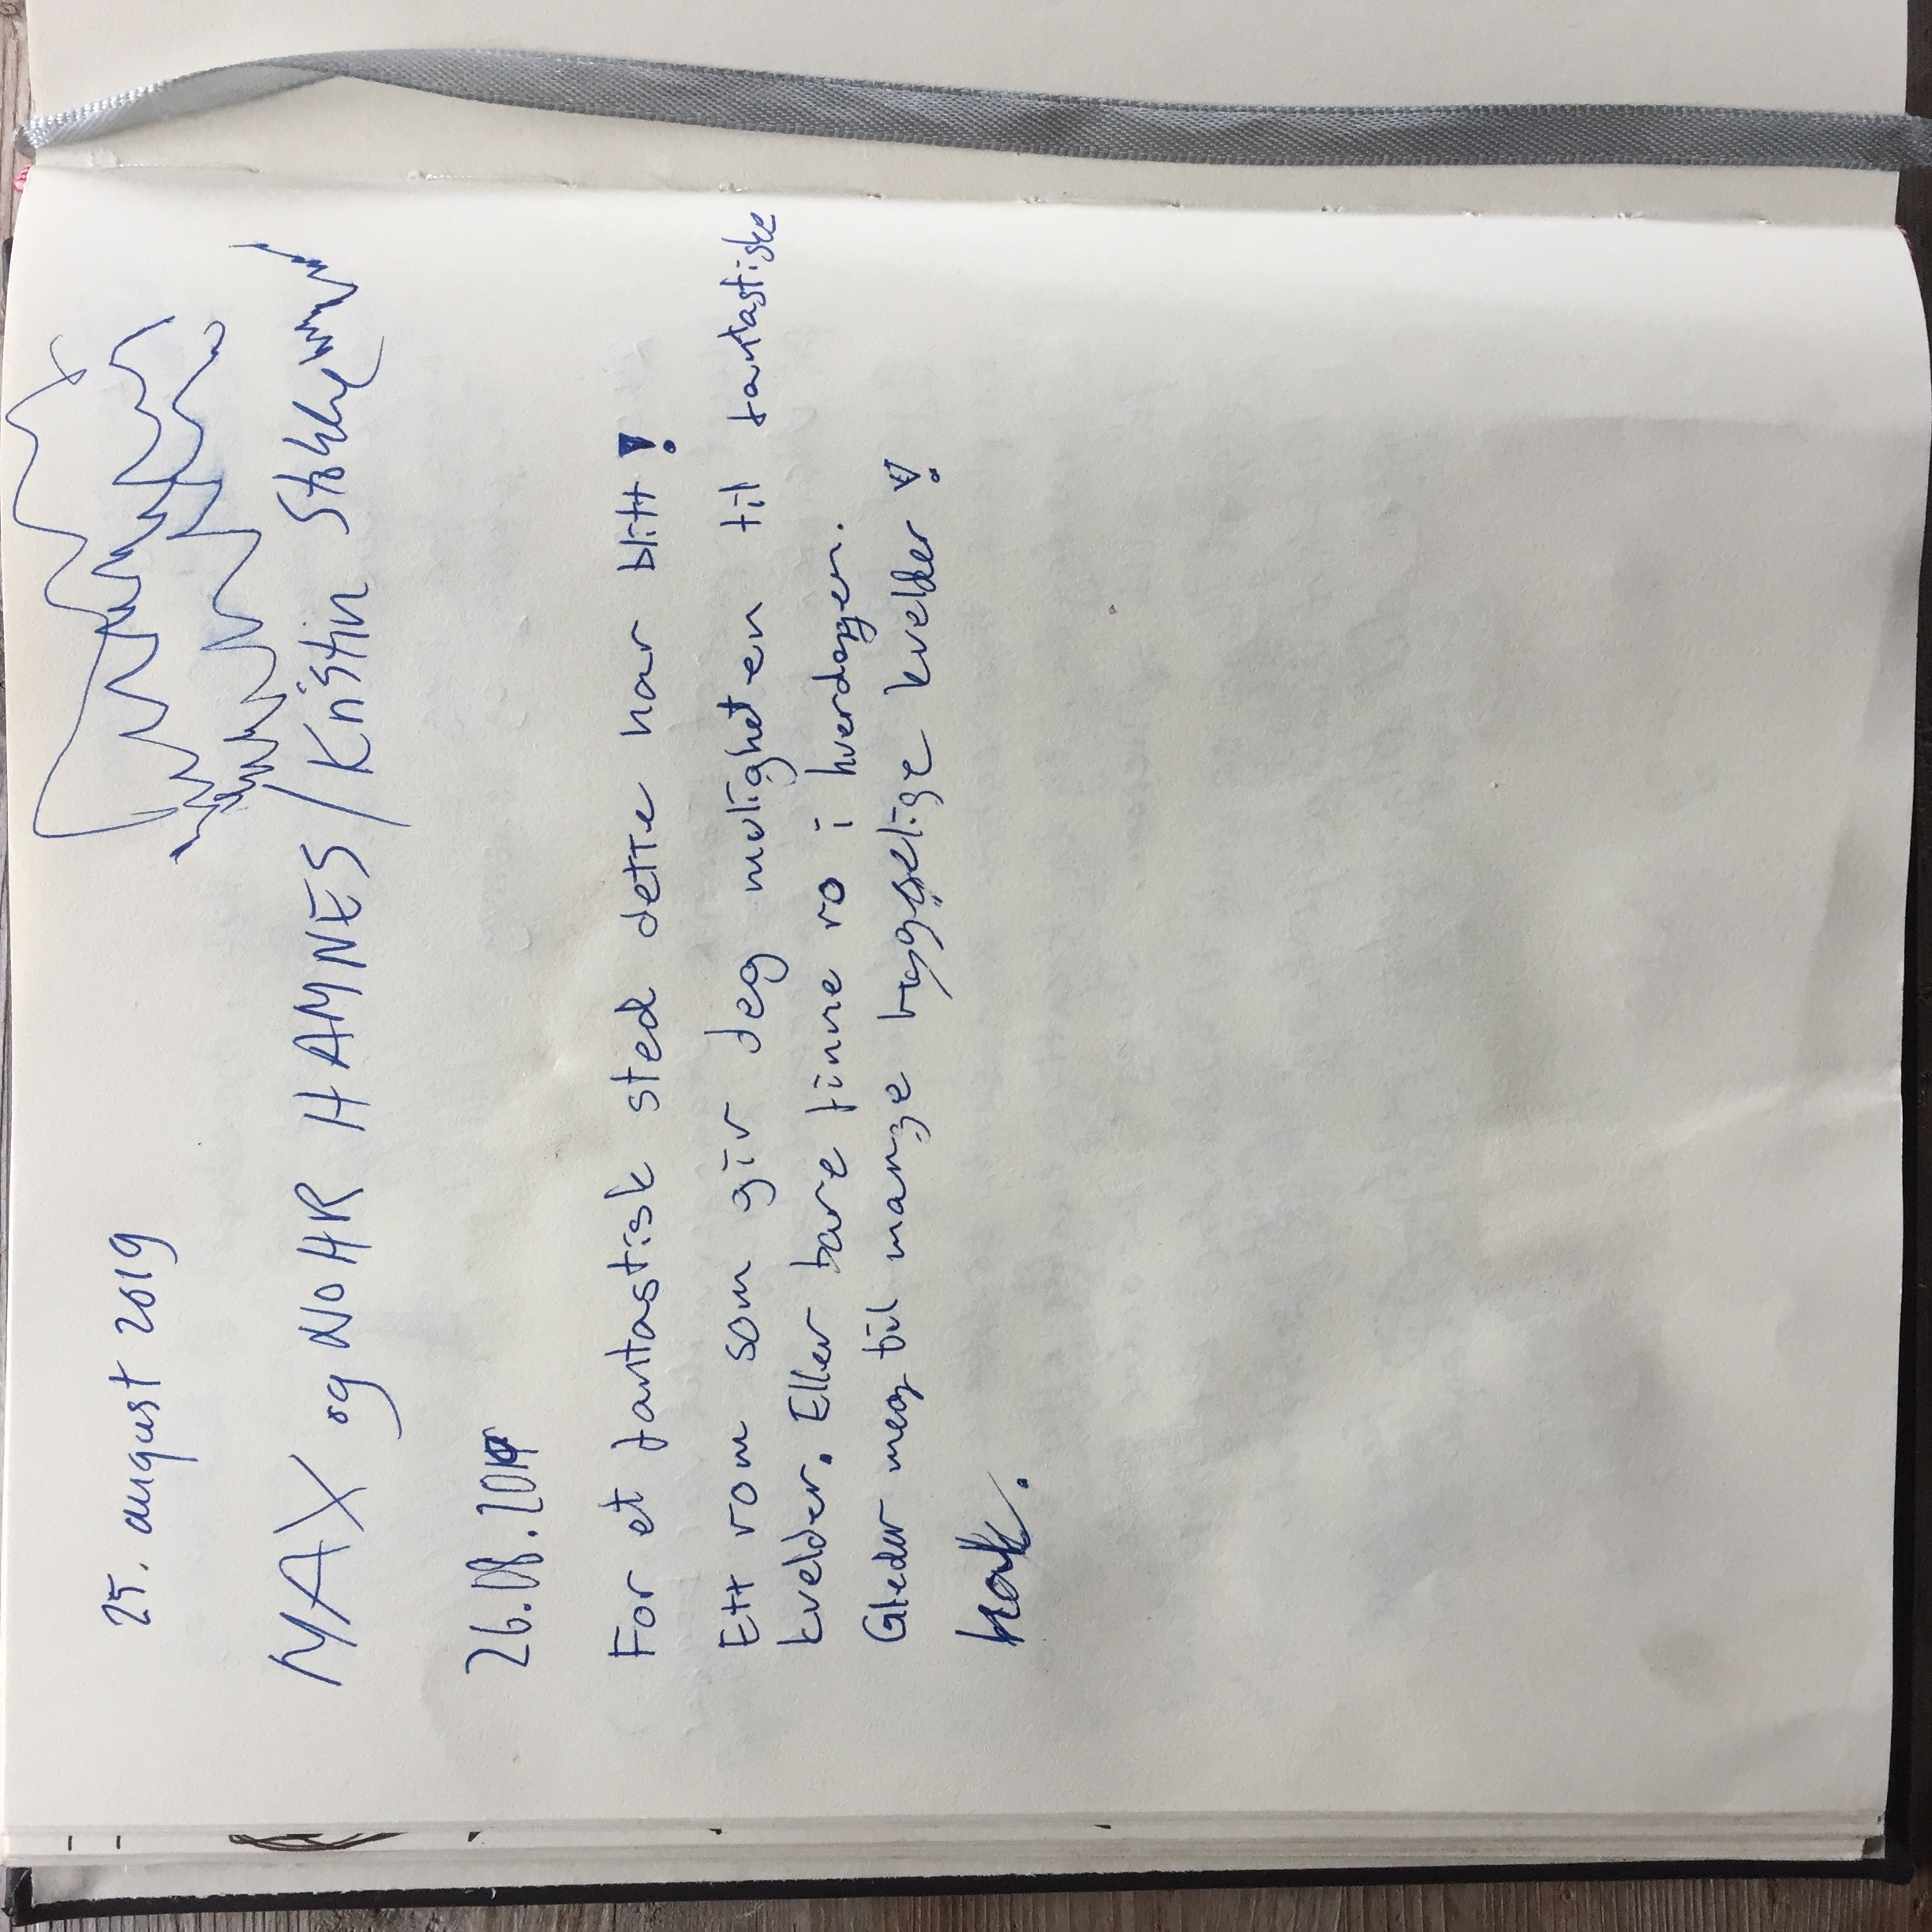 25. august 2019
MAX og NOHR HAMNES/Kristin
26.08.2019
For et fantastisk sted dette har blitt!
Ett rom som gir deg muligheten til fantastiske
kvelder. Eller bare finne ro i hverdagen.
Gleder meg til mange hyggelige kvelder!